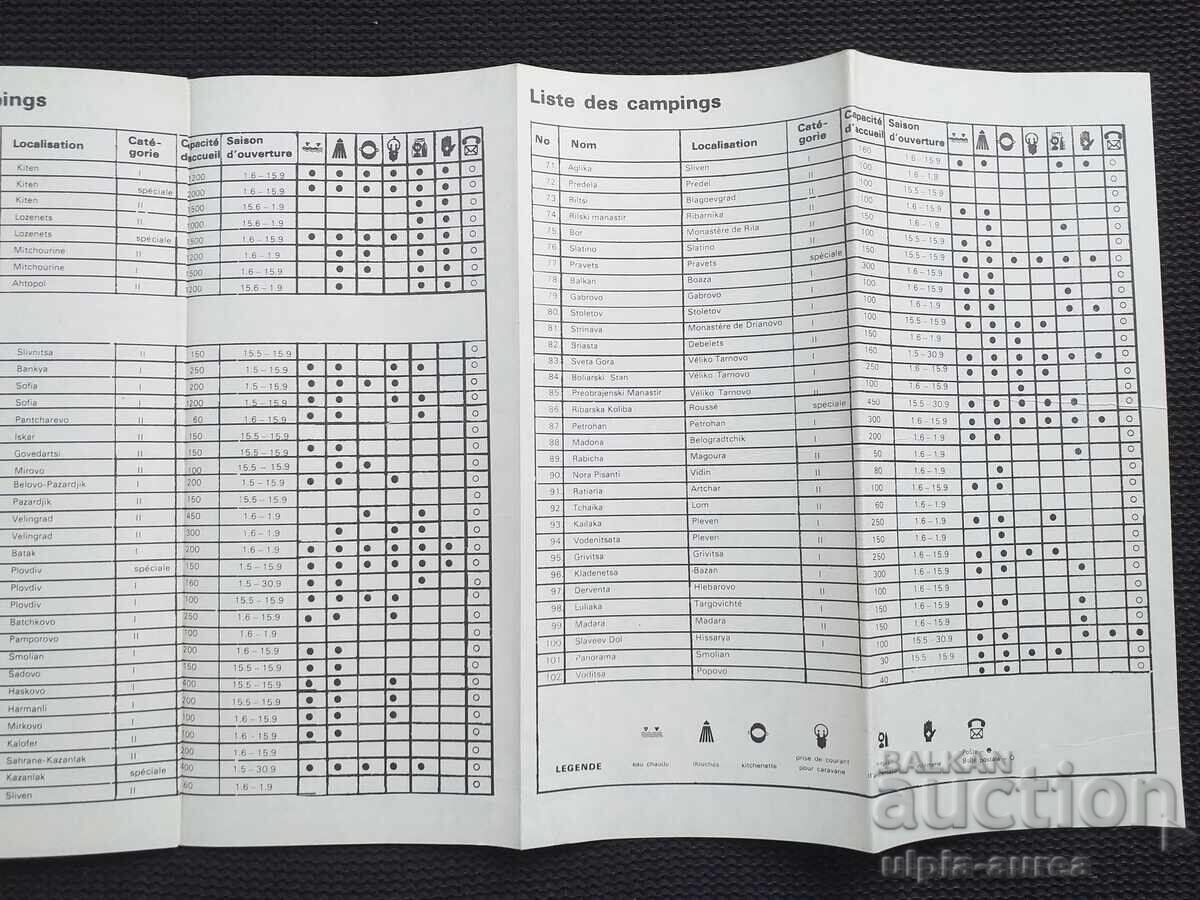 pings
Localisation Caté-gorie Capacité d'accueil Saison d'ouverture
Kiten I 1200 1.6 – 15.9
Kiten spéciale 2000 1.6 – 15.9
Kiten II 1500 15.6 – 1.9
Lozenets II 1000 15.6 – 1.9
Lozenets spéciale 1500 1.6 – 15.9
Mitchourine II 1.6 – 1.9
Mitchourine I 1500 1.6 – 15.9
Ahtopol II 1200 15.6 – 1.9
Slivnitsa II 150 15.5 – 15.9
Bankya I 250 1.5 – 15.9
Sofia I 200 1.5 – 15.9
Sofia I 1200 1.5 – 15.9
Pantcharevo II 60 1.6 – 15.9
Iskar II 150 15.5 – 15.9
Govedartsi II 150 15.5 – 15.9
Mirovo II 100 15.5 – 15.9
Belovo-Pazardjik I 200 1.5 – 15.9
Pazardjik II 150 15.5 – 15.9
Velingrad II 450 1.6 – 1.9
Velingrad II 300 1.6 – 15.9
Batak I 200 1.6 – 1.9
Plovdiv spéciale 150 1.5 – 15.9
Plovdiv I 160 1.5 – 30.9
Plovdiv I 100 15.5 – 15.9
Batchkovo I 250 1.6 – 15.9
Pamporovo II 100 1.6 – 1.9
Smolian I 200 1.6 – 15.9
Sadovo I 150 15.5 – 15.9
Haskovo I 400 15.5 – 15.9
Harmanli I 200 15.5 – 15.9
Mirkovo I 100 1.6 – 15.9
Kalofer II 100 1.6 – 15.9
Sahrane-Kazanlak II 200 1.6 – 1.9
Kazanlak spéciale 400 1.5 – 30.9
Sliven II 60 1.6 – 1.9
Liste des campings
No Nom Localisation Caté-gorie Capacité d'accueil Saison d'ouverture
71. Aglika Sliven I 160 1.6 – 15.9
72. Predela Predel II 100 1.6 – 1.9
73. Riltsi Blagoevgrad I 100 15.5 – 15.9
74. Rilski manastir Ribarnika II 100 1.6 – 15.9
75. Bor Monastère de Rila II 150 1.6 – 1.9
76. Slatino Slatino II 100 15.5 – 15.9
77. Pravets Pravets spéciale 150 15.5 – 15.9
78. Balkan Boaza I 300 1.6 – 15.9
79. Gabrovo Gabrovo I 100 1.6 – 15.9
80. Stoletov Stoletov II 100 1.6 – 1.9
81. Strinava Monastère de Drianovo I 100 15.5 – 15.9
82. Briasta Debelets II 150 1.6 – 1.9
83. Sveta Gora Véliko Tarnovo I 160 1.5 – 30.9
84. Boliarski Stan Véliko Tarnovo I 250 1.6 – 15.9
85. Preobrajenski Manastir Véliko Tarnovo II 100 1.6 – 1.9
86. Ribarska Koliba Roussé spéciale 450 15.5 – 30.9
87. Petrohan Petrohan I 300 1.6 – 15.9
88. Madona Belogradtchik I 200 1.6 – 1.9
89. Rabicha Magoura II 50 1.6 – 1.9
90. Nora Pisanti Vidin II 80 1.6 – 1.9
91. Ratiaria Artchar II 100 1.6 – 15.9
92. Tchaika Lom II 60 1.6 – 1.9
93. Kailaka Pleven I 250 1.6 – 15.9
94. Vodenitsata Pleven II 150 1.6 – 1.9
95. Grivitsa Grivitsa I 250 1.6 – 15.9
96. Kladenetsa Bazan I 300 1.6 – 15.9
97. Derventa Hlebarovo II 100 1.6 – 15.9
98. Luliaka Targovichté I 150 1.6 – 15.9
99. Madara Madara II 150 1.6 – 15.9
100. Slaveev Dol Hissarya I 100 15.5 – 30.9
101. Panorama Smolian 30 15.5 – 15.9
102. Voditsa Popovo 40
LEGENDE
eau chaude douches kitchenette prise de courant pour caravane
Poste
Boîte postale
BALKAN
auction
ulpia-aurea